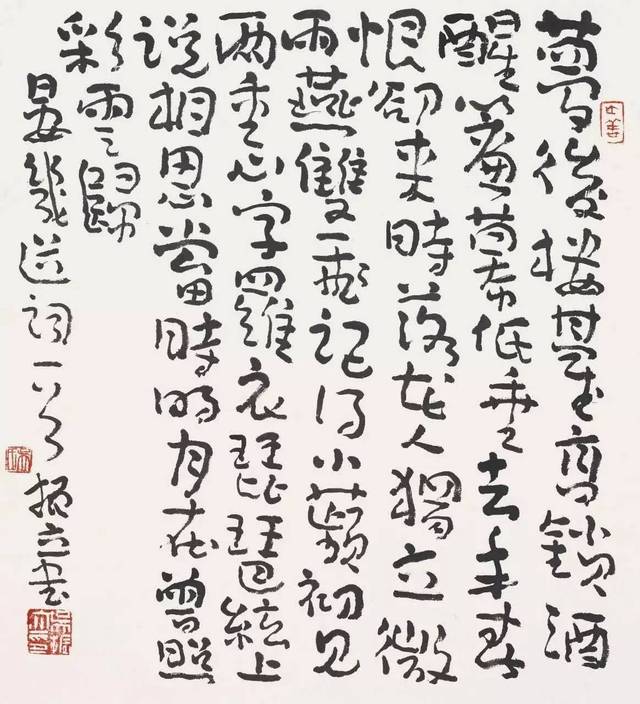 夢後樓臺高鎖酒
醒簾幕低垂去年春
恨卻來時落花人獨立微
雨燕雙飛記得小蘋初見
两重心字羅衣琵琶絃上
说相思當時明月在曾照
彩雲歸
晏幾道詞一首 振立书